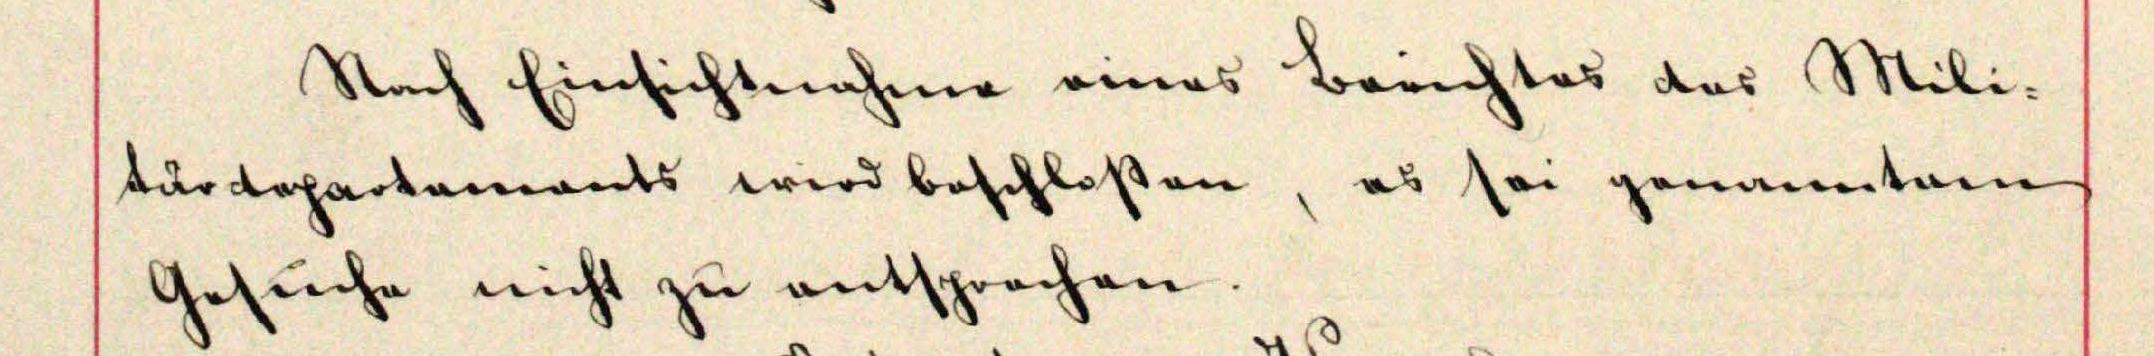 Nach Einsichtnahme eines Berichtes des Mili-
tärdepartements wird beschloßen, es sei genanntem
Gesuche nicht zu entsprechen.